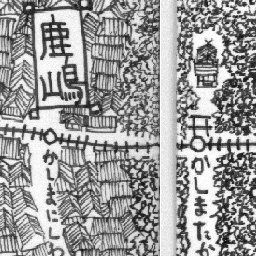 鹿嶋
かしまにしぐ
かしまたか